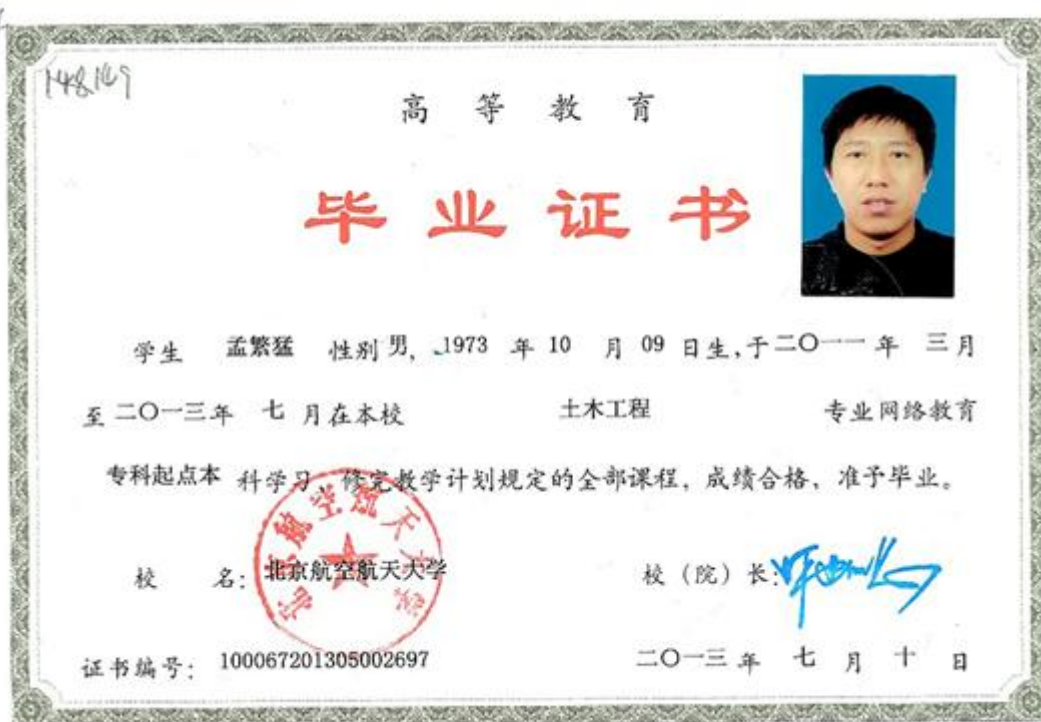 148149
高等教育
毕业证书
学生 孟繁猛 性别 男, 1973 年 10 月 09 日生,于二〇一一年 三月
至二〇一三年 七月在本校 土木工程 专业网络教育
专科起点本 科学习,修完教学计划规定的全部课程,成绩合格,准予毕业。
校 名: 北京航空航天大学
校(院)长:
证书编号: 100067201305002697
二〇一三年 七月 十日
北京航空航天大学